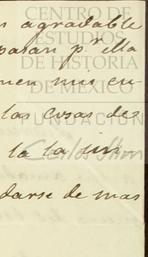 CENTRO DE
ESTUDIOS
DE HISTORIA
DE MEXICO
FUNDACIÓN
Carlos Slim
agradable
pasan pr ella
men mis cu
las cosas de
la la im
darse de mas